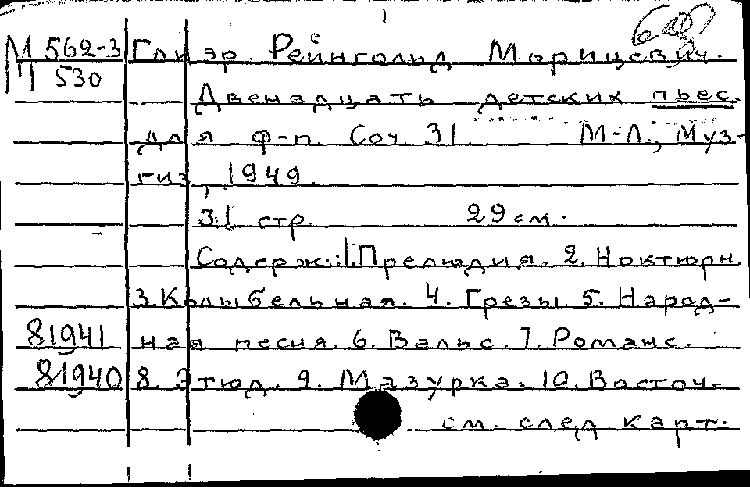 М 562-3 Глиэр Рейнгольд Морицевич.
530
Двенадцать детских пьес
для ф-п. Соч. 31 М-Л., Муз-
гиз, 1949.
31 стр. 29 см.
Содерж.: 1. Прелюдия. 2. Ноктюрн
3. Колыбельная. 4. Грезы 5. Народ-
81941 ная песня. 6. Вальс. 7. Романс.
81940 8. Этюд. 9. Мазурка. 10. Восточ-
см. след карт.